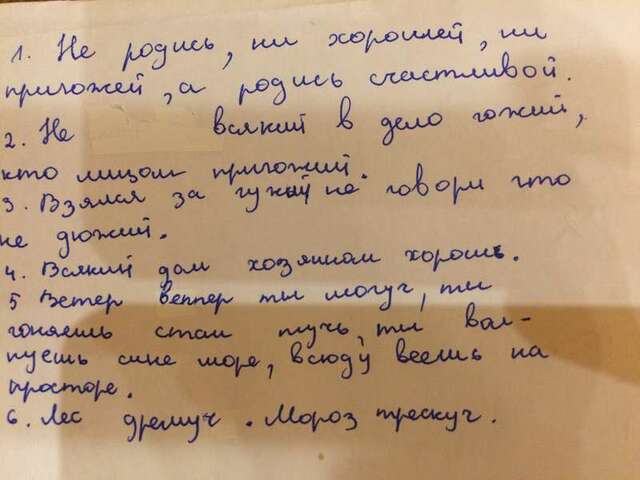 1. Не родись, ни хорошей, ни
пригожей, а родись счастливой.
2. Не всякий в дело гожий,
кто лицом пригожий.
3. Взялся за не говори что
не дюжий.
4. Всякий дом хозяином хорош.
5 Ветер ветер ты могуч, ты
гоняешь стаи туч, ты вол-
нуешь сине море, всюду веешь на
просторе.
6. Лес дремуч. Мороз трескуч.